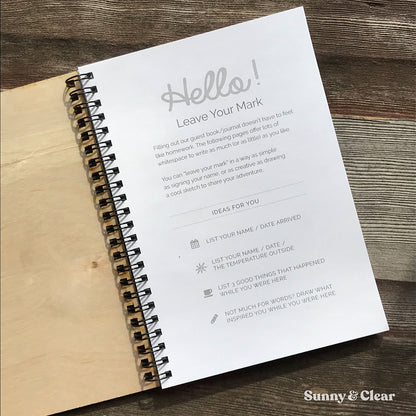 Hello!
Leave Your Mark
Filling out our guest book/journal doesn't have to feel
like homework. The following pages offer lots of
whitespace to write as much (or as little) as you like.
You can "leave your mark" in a way as simple
as signing your name, or as creative as drawing
a cool sketch to share your adventure.
IDEAS FOR YOU
LIST YOUR NAME / DATE ARRIVED
LIST YOUR NAME / DATE /
THE TEMPERATURE OUTSIDE
LIST 3 GOOD THINGS THAT HAPPENED
WHILE YOU WERE HERE
NOT MUCH FOR WORDS? DRAW WHAT
INSPIRED YOU WHILE YOU WERE HERE
Sunny & Clear